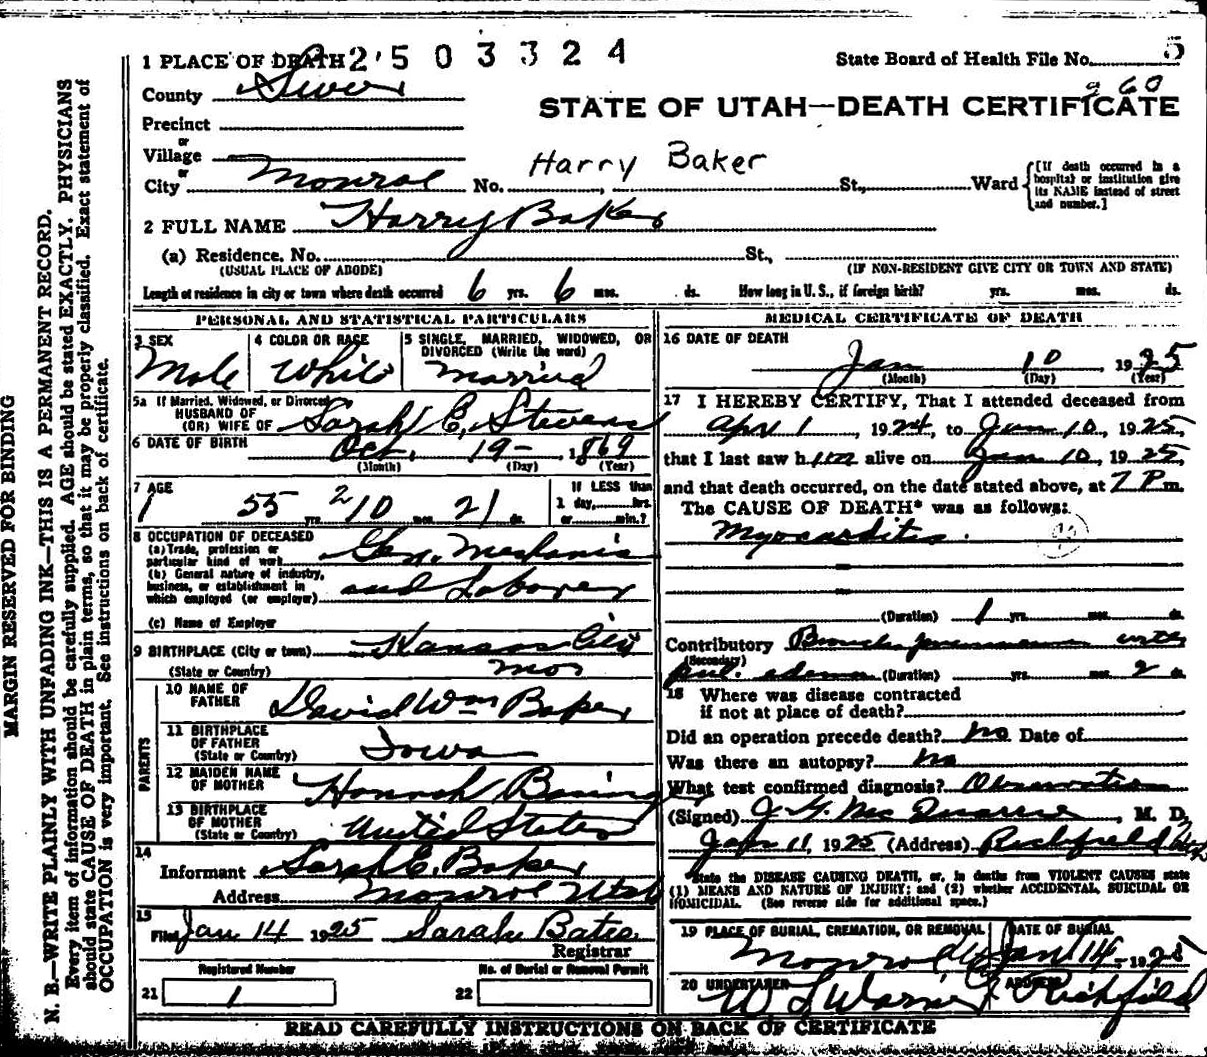 1 PLACE OF DEATH 2503324 State Board of Health File No. 5
County Sevier 960
STATE OF UTAH—DEATH CERTIFICATE
Precinct
or
Village
or
City Monroe No. , St., Ward
Harry Baker
[If death occurred in a
hospital or institution give
its NAME instead of street
and number.]
2 FULL NAME Harry Baker
(a) Residence. No. St.,
(USUAL PLACE OF ABODE) (IF NON-RESIDENT GIVE CITY OR TOWN AND STATE)
Length of residence in city or town where death occurred 6 yrs. 6 mos. ds. How long in U. S., if foreign birth? yrs. mos. ds.
PERSONAL AND STATISTICAL PARTICULARS
3 SEX
Male
4 COLOR OR RACE
White
5 SINGLE, MARRIED, WIDOWED, OR
DIVORCED (Write the word)
Married
5a If Married, Widowed, or Divorced
HUSBAND OF
(OR) WIFE OF Sarah E. Stevens
6 DATE OF BIRTH Oct. 19- 1869
(Month) (Day) (Year)
7 AGE
1 55 yrs. 2 10 mos. 21 ds.
If LESS than
1 day, hrs.
or min.?
8 OCCUPATION OF DECEASED
(a) Trade, profession or
particular kind of work Gen. Mechanic
(b) General nature of industry,
business, or establishment in
which employed (or employer) and Laborer
(c) Name of Employer
9 BIRTHPLACE (City or town) Kansas City
(State or Country) Mo
PARENTS
10 NAME OF
FATHER David Wm Baker
11 BIRTHPLACE
OF FATHER
(State or Country) Iowa
12 MAIDEN NAME
OF MOTHER Hannah
13 BIRTHPLACE
OF MOTHER
(State or Country) United States
14
Informant Sarah E. Baker
Address Monroe Utah
15
Filed Jan 14 1925 Sarah Bates
Registrar
Registered Number
21 1
No. of Burial or Removal Permit
22
MEDICAL CERTIFICATE OF DEATH
16 DATE OF DEATH
Jan 10 1925
(Month) (Day) (Year)
17 I HEREBY CERTIFY, That I attended deceased from
Apr 1, 1924, to Jan 10, 1925,
that I last saw him alive on Jan 10, 1925,
and that death occurred, on the date stated above, at 7 P m.
The CAUSE OF DEATH* was as follows:
Myocarditis.
(Duration) 1 yrs. mos. ds.
Contributory Broncho pneumonia with
(Secondary)
pul. edema (Duration) yrs. mos. 2 ds.
18 Where was disease contracted
if not at place of death?
Did an operation precede death? no Date of
Was there an autopsy? No
What test confirmed diagnosis? Observation
(Signed) J. G. , M. D.
Jan 11, 1925 (Address) Richfield Utah
*State the DISEASE CAUSING DEATH, or, in deaths from VIOLENT CAUSES state
(1) MEANS AND NATURE OF INJURY; and (2) whether ACCIDENTAL, SUICIDAL OR
HOMICIDAL. (See reverse side for additional space.)
19 PLACE OF BURIAL, CREMATION, OR REMOVAL
Monroe
DATE OF BURIAL
Jan 14 1925
20 UNDERTAKER
W L Warner
ADDRESS
Richfield
READ CAREFULLY INSTRUCTIONS ON BACK OF CERTIFICATE
MARGIN RESERVED FOR BINDING
N. B.—WRITE PLAINLY WITH UNFADING INK—THIS IS A PERMANENT RECORD.
Every item of information should be carefully supplied. AGE should be stated EXACTLY. PHYSICIANS
should state CAUSE OF DEATH in plain terms, so that it may be properly classified. Exact statement of
OCCUPATION is very important. See instructions on back of certificate.